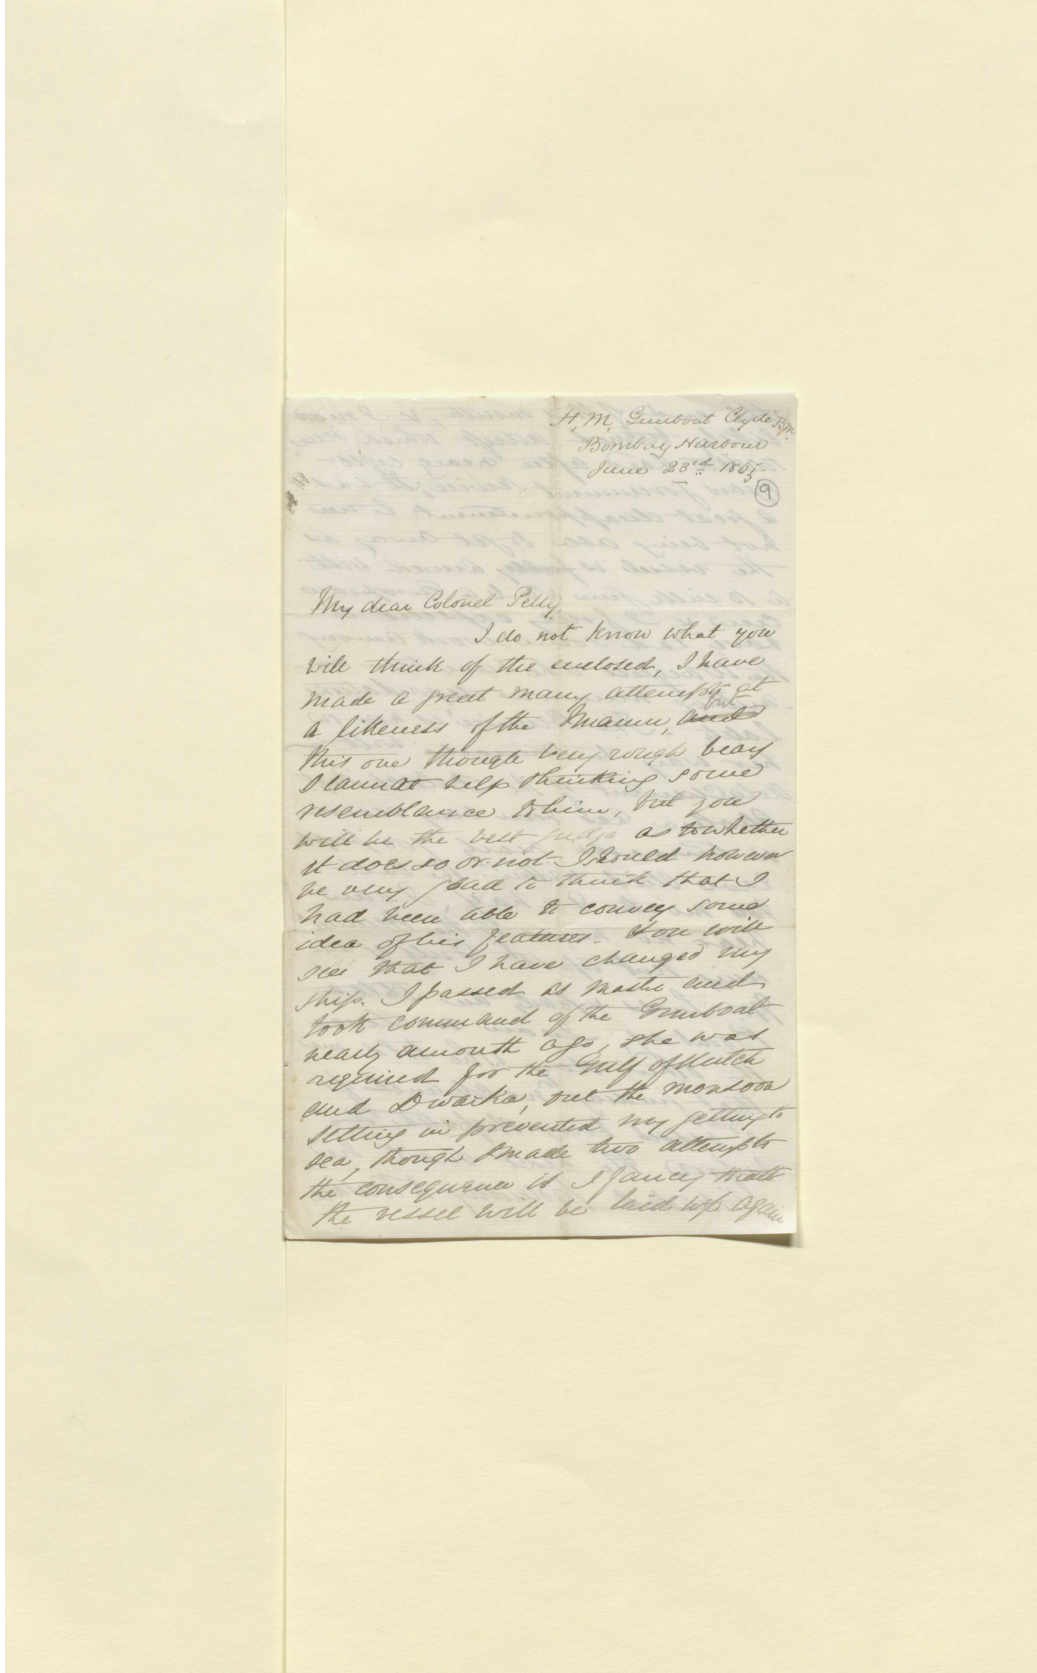 H. M. Gunboat "Clyde"
Bombay Harbour
June 23rd 1865
9
My dear Colonel Pelly,
I do not know what you
will think of the enclosed, I have
made a great many attempts at
a likeness of the Imaum, but
this one though very rough bears
I cannot help thinking some
resemblance to him, but you
will be the best judge as to whether
it does so or not I should however
be very glad to think that I
had been able to convey some
idea of his features. You will
see that I have changed my
ship. I passed as master and
took command of the Gunboat
nearly a month ago, she was
required for the Gulf of Kutch
and Dwarka, but the monsoon
setting in prevented my getting to
sea, though I made two attempts
the consequence is I fancy that
the vessel will be laid up again